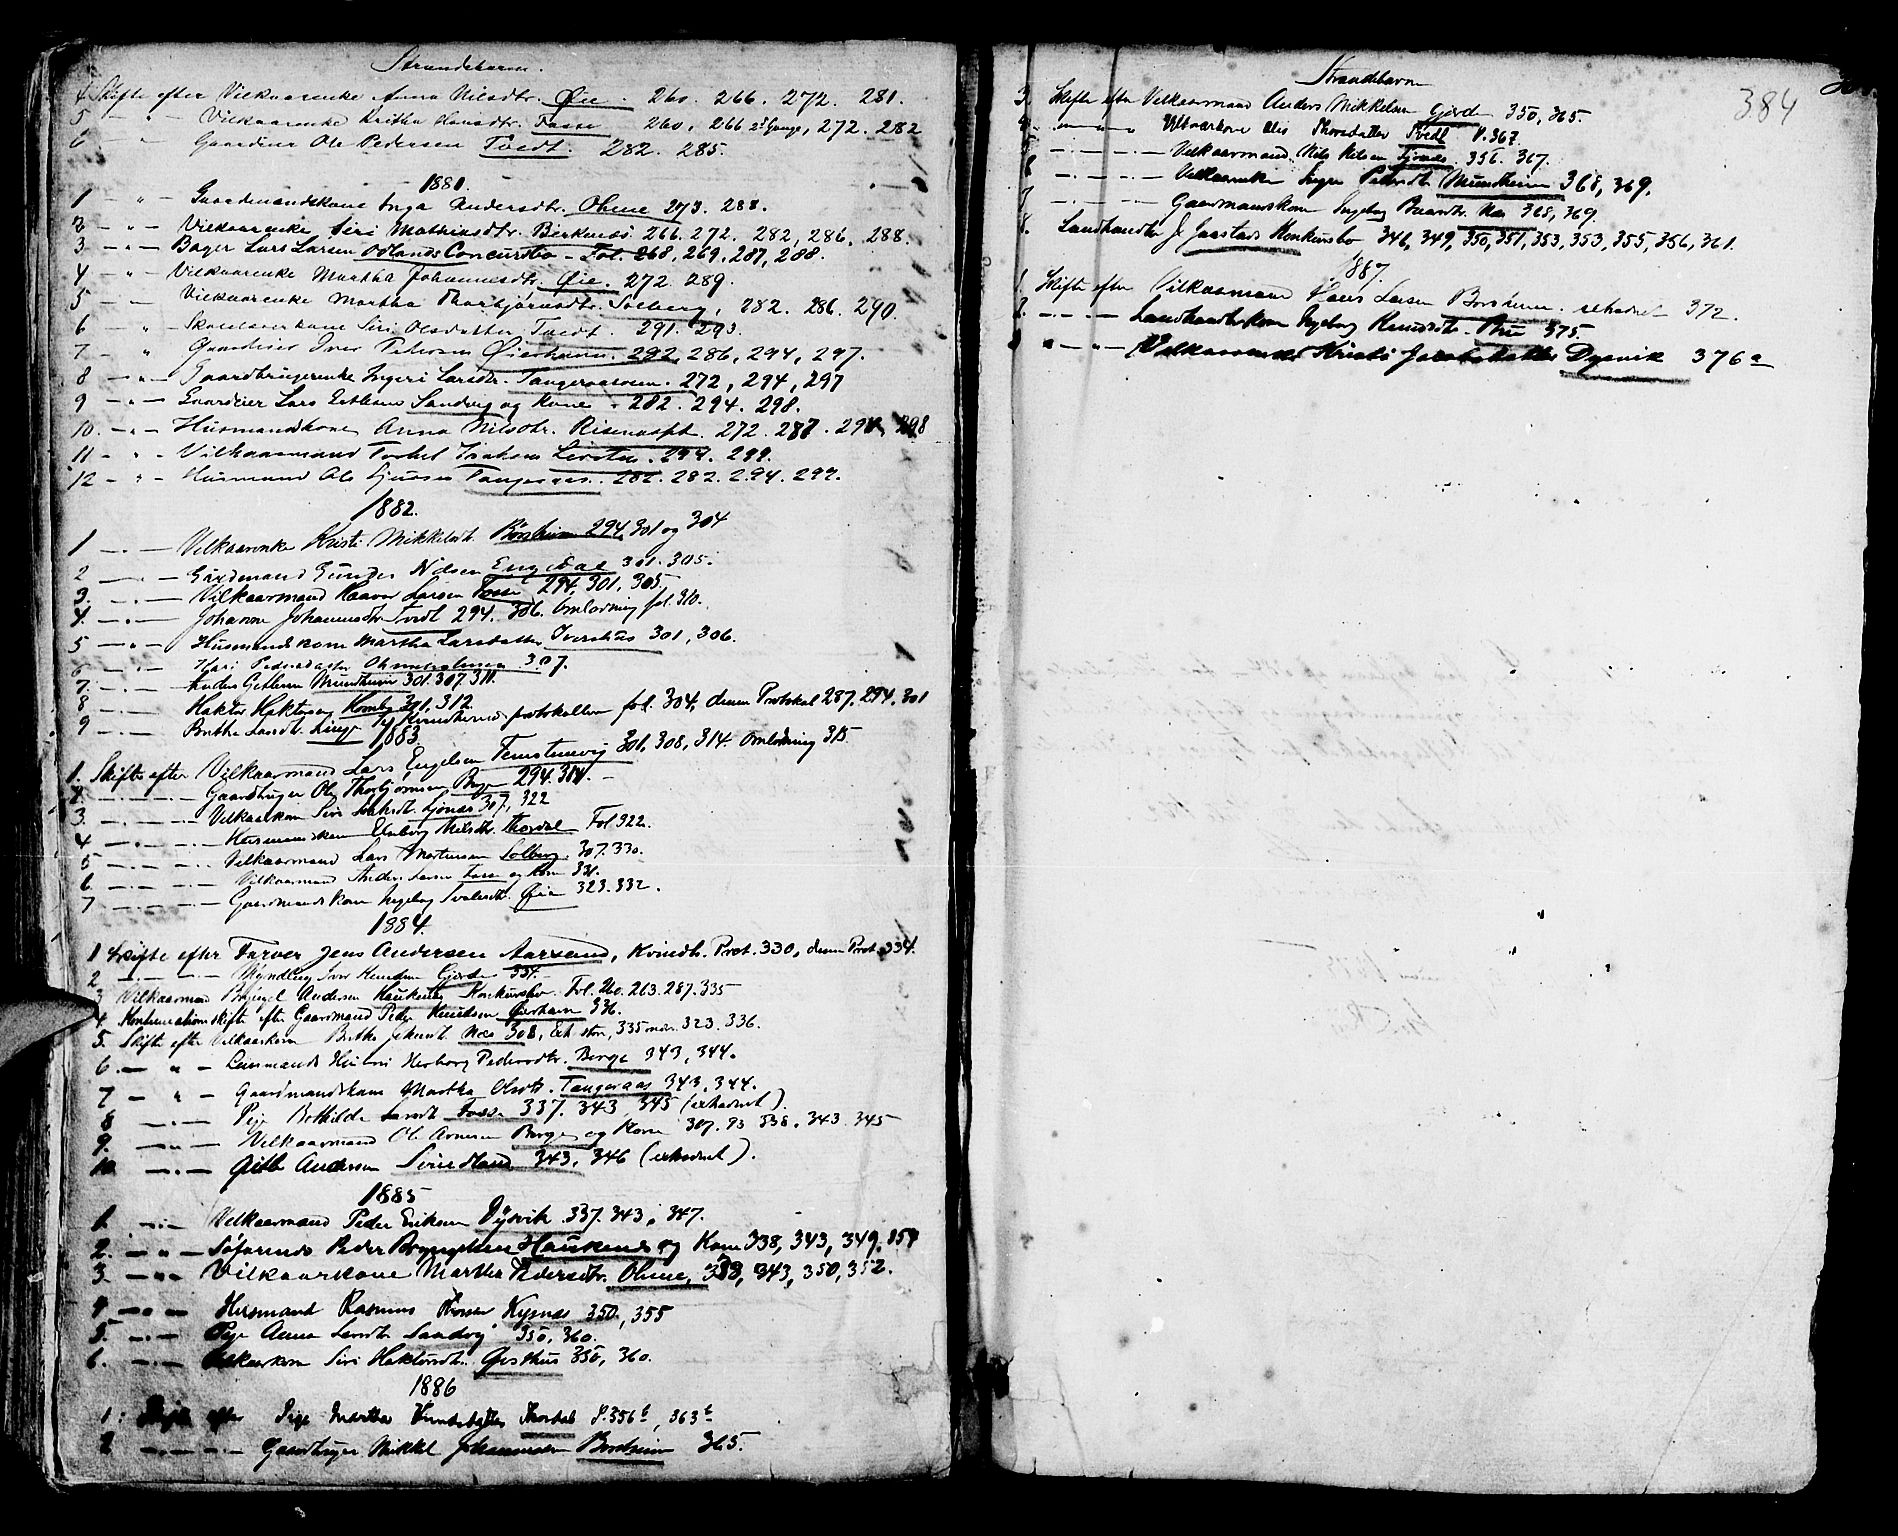 Strandebarm.
4 Skifte efter Vilkaarenke Anna Nilsdtr. Øie. 260. 266. 272. 281.
5 — " — Vilkaarenke Brita Hansdtr. Fosse 260, 266 2d Gange, 272. 282
6 — " — Gaardeier Ole Pedersen Tvedt. 282. 285.
1881.
1 — " — Gaardmandskone Inga Andersdtr. Ohme 273. 288.
2 — " — Vilkaarenke Siri Mathiasdtr. Birkenæs 266. 272. 282, 286, 288.
3 — " — Bager Lars Larsen Odlands Concursbo — Fol. 268, 269, 287, 288.
4 — " — Vilkaarenke Martha Johannesdtr. Øie. 272. 289.
5 — " — Vilkaarenke Martha Thorbjørnsdtr. Solberg, 282. 286. 290.
6 " Skolelærerkone Siri Olsdatter Tvedt. 291. 293.
7 — " Gaardeier Iver Pedersen Øierhavn. 282, 286, 294, 297.
8 — " — Gaardbrugerenke Ingeri Larsdtr. Tangeraasen. 272, 294, 297
9 — " — Gaardeier Lars Sandvig og Kone - 282. 294. 298.
10. — " — Husmandskone Anna Nilsdtr. 272. 287. 298
11 — " — Vilkaarmand Torkel 299.
12 — " — Husmand Ole Tangeraas. 282. 294. 299.
1882.
1 — " — Vilkaarenke Kristi Mikkelsdt. Børsheim 294, 301 og 304
2 — " — Gaardmand Gunder Nilsen Engedal 301. 305.
3. — " — Vilkaarmand Haavar Larsen Fosse 294, 301, 305.
4. — " — Johanne Johannesdtr Tvedt 294. 306. Omlodning fol. 310.
5 — " — Husmandskone Martha Larsdatter Iverhus 301, 306.
6 — " — Kari Pedersdatter Ohmeholmen 307.
7. — " — Anders Gitlesen Mundheim 301. 307. 311.
8 — " — Haktor Haktorsen 301, 312.
9 — " — Brithe Larsdt. Linge Kvindherred protokollen fol. 304, denne Protokol 287. 294. 301
1883.
1. Skifte efter Vilkaarmand Lars Engelsen Femsteinevig 301, 308, 314. Omlodning 315.
2. — " — Gaardbruger Ole Thorbjørnsen Berge 294. 314.
3. — " — Vilkaarkone Siri Ljones 307, 322
4 — " — Husmandskone Elmborg Nilsdtr. Thordal Fol 322.
5 — " — Vilkaarmand Lars Mortensen Solberg. 307. 330.
6. — " — Vilkaarmand Anders Larsen Fosse og Kone 331.
7 — " — Gaardmandskone Ingeborg Øie 323. 332.
1884.
1 Skifte efter Farver Jens Andersen Aarsand, Kvindh. Prot. 330, denne Prot. 334.
2 — " — Myndling Iver Knudsen Gjerde 334.
3 Vilkaarmand Brynjel Andersen Haukenæs Konkursbo. Fol. 260. 263. 287. 335
4. efter Gaardmand Peder Knudsen Øierhavn 336.
5. Skifte efter Vilkaarkone Brithe Næs 308, 335 323. 336.
6. — " — Lensmands Hustru Herborg Pedersdtr. Berge 343, 344.
7 — " — Gaardmandskone Martha Olsdtr. Tangeraas 343. 344.
8 — " — Pige Bothilde Larsdt Fosse 337. 343 345 (extraheret).
9. — " — Vilkaarmand Ole Arnesen Berge og Kone 307. 338. 343. 345
10 — " — Gitle Andersen 343, 346 (extraheret).
1885
1. — " — Vilkaarmand Peder Eriksen Dysvik. 337. 343, 347.
2. — " — Søfarende Peder Brynjelsen Haukenæs og Kone 338, 343, 349. 351
3. — " — Vilkaarkone Martha Pedersdtr. Ohme, 338, 343, 350, 352.
4 — " — Husmand Rasmus 350, 355
5. — " — Pige Anna Larsdt. Sandvig 350, 360.
6. — " — Vilkaarkone Siri Haktorsdt. 350, 360.
1886
1. Skifte efter Pige Martha Knudsdatter Thordal P. 356b, 363b
2 — " — Gaardbruger Mikkel Johannesen Børsheim 365.
Strandebarm
384
3. Skifte efter Vilkaarmand Anders Mikkelsen Gjerde 350, 365.
4. — " — Vilkaarkone Thorsdatter Tvedt P. 367.
5 — " — Vilkaarmand Nils Nilsen Ljones. 356. 367.
6 — " — Vilkaarenke Inger Pedersdt. Mundheim 368, 369.
7 — " — Gaardmandskone Ingeborg Næs 368, 369.
8. Landhandler J. Jaastads Konkursbo 346, 349, 350, 351, 353, 353, 355, 356, 361.
1887.
1. Skifte efter Vilkaarmand Hans Larsen Børsheim. extraheret 372.
2. — " — Landhandlerkone Ingeborg Knudsdt. 375
3 — " — Vilkaarenke Kristi Jacobsdatter Dysvik 376a